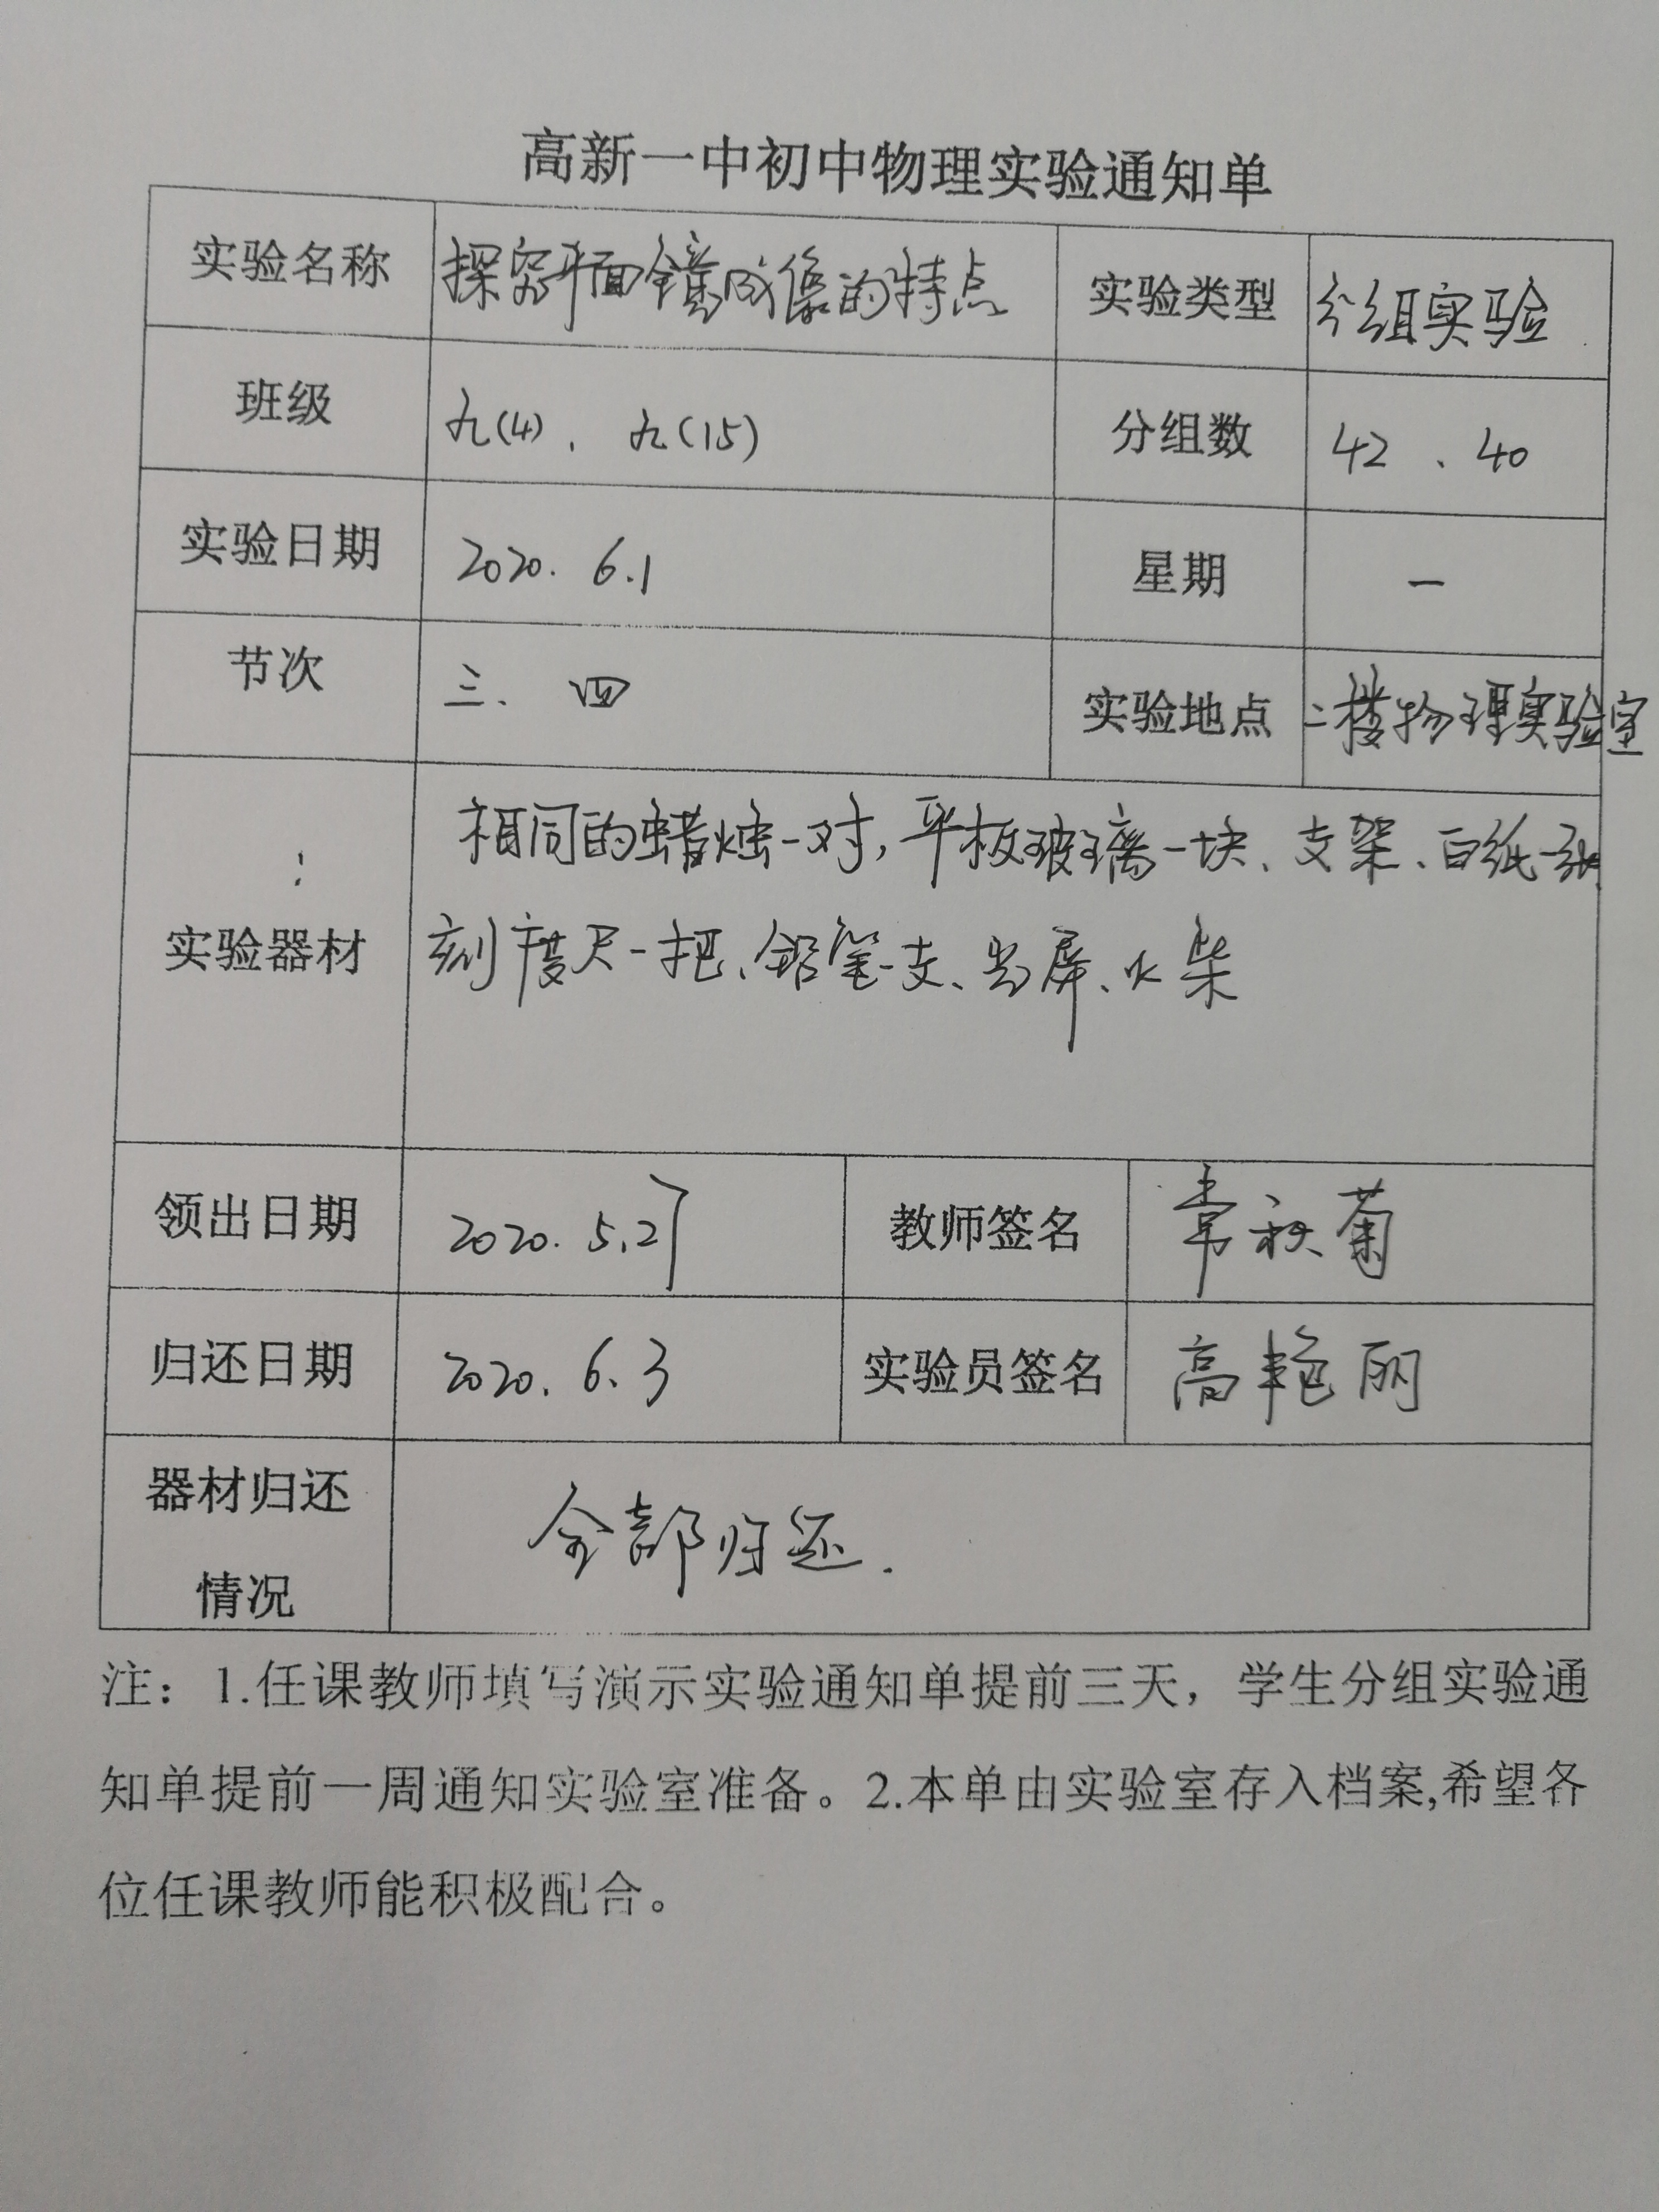 高新一中初中物理实验通知单
实验名称 探究平面镜成像的特点 实验类型 分组实验
班级 九(4)、九(15) 分组数 42、40
实验日期 2020.6.1 星期 一
节次 三、四 实验地点 二楼物理实验室
相同的蜡烛一对,平板玻璃一块、支架、白纸一张
实验器材 刻度尺一把、铅笔一支、光屏、火柴
领出日期 2020.5.27 教师签名 秋菊
归还日期 2020.6.3 实验员签名 高艳丽
器材归还
情况 全部归还.
注：1.任课教师填写演示实验通知单提前三天，学生分组实验通
知单提前一周通知实验室准备。2.本单由实验室存入档案,希望各
位任课教师能积极配合。